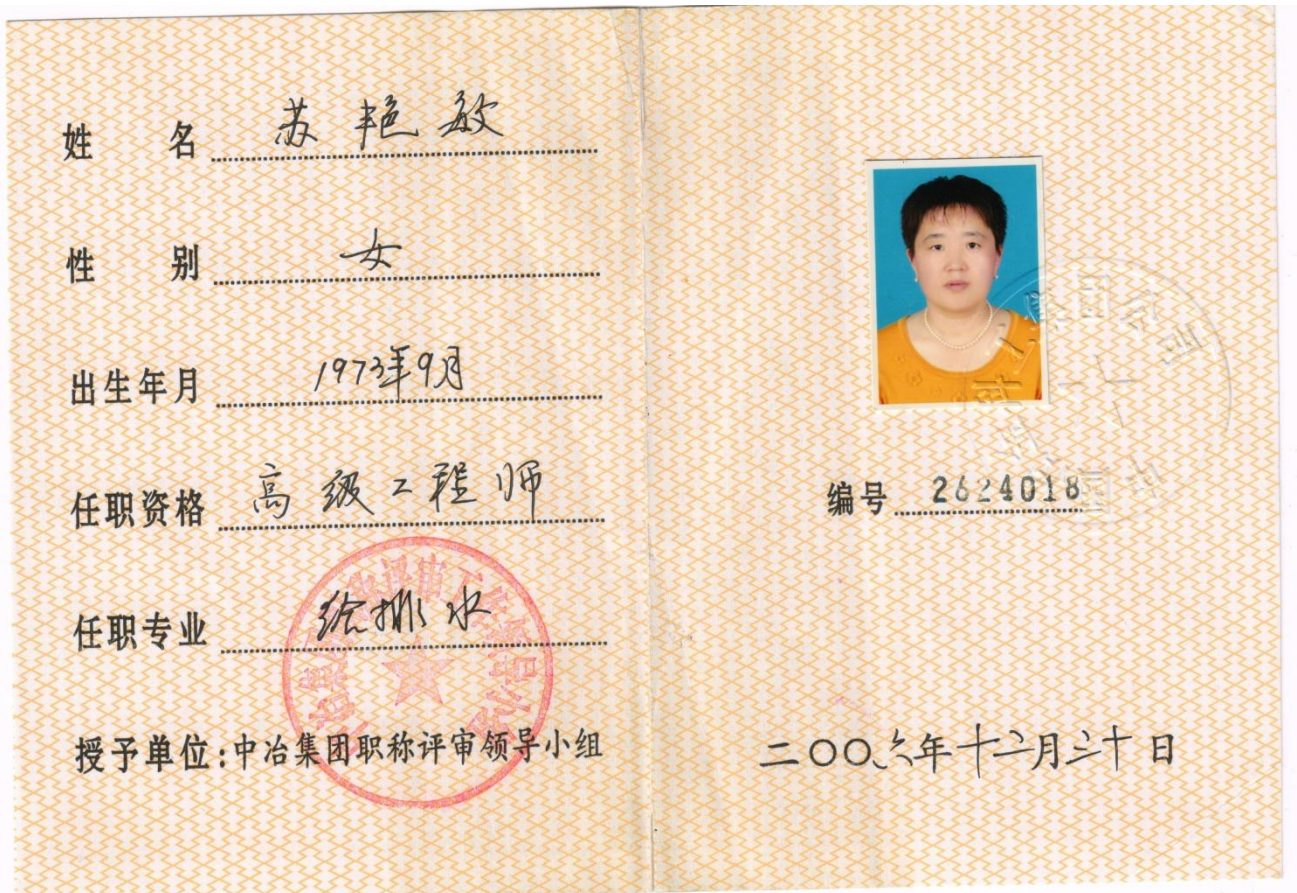 姓 名 苏艳敏
性 别 女
出生年月 1973年9月
任职资格 高级工程师
任职专业 给排水
授予单位:中冶集团职称评审领导小组
编号 2624018
二〇〇六年十二月三十日